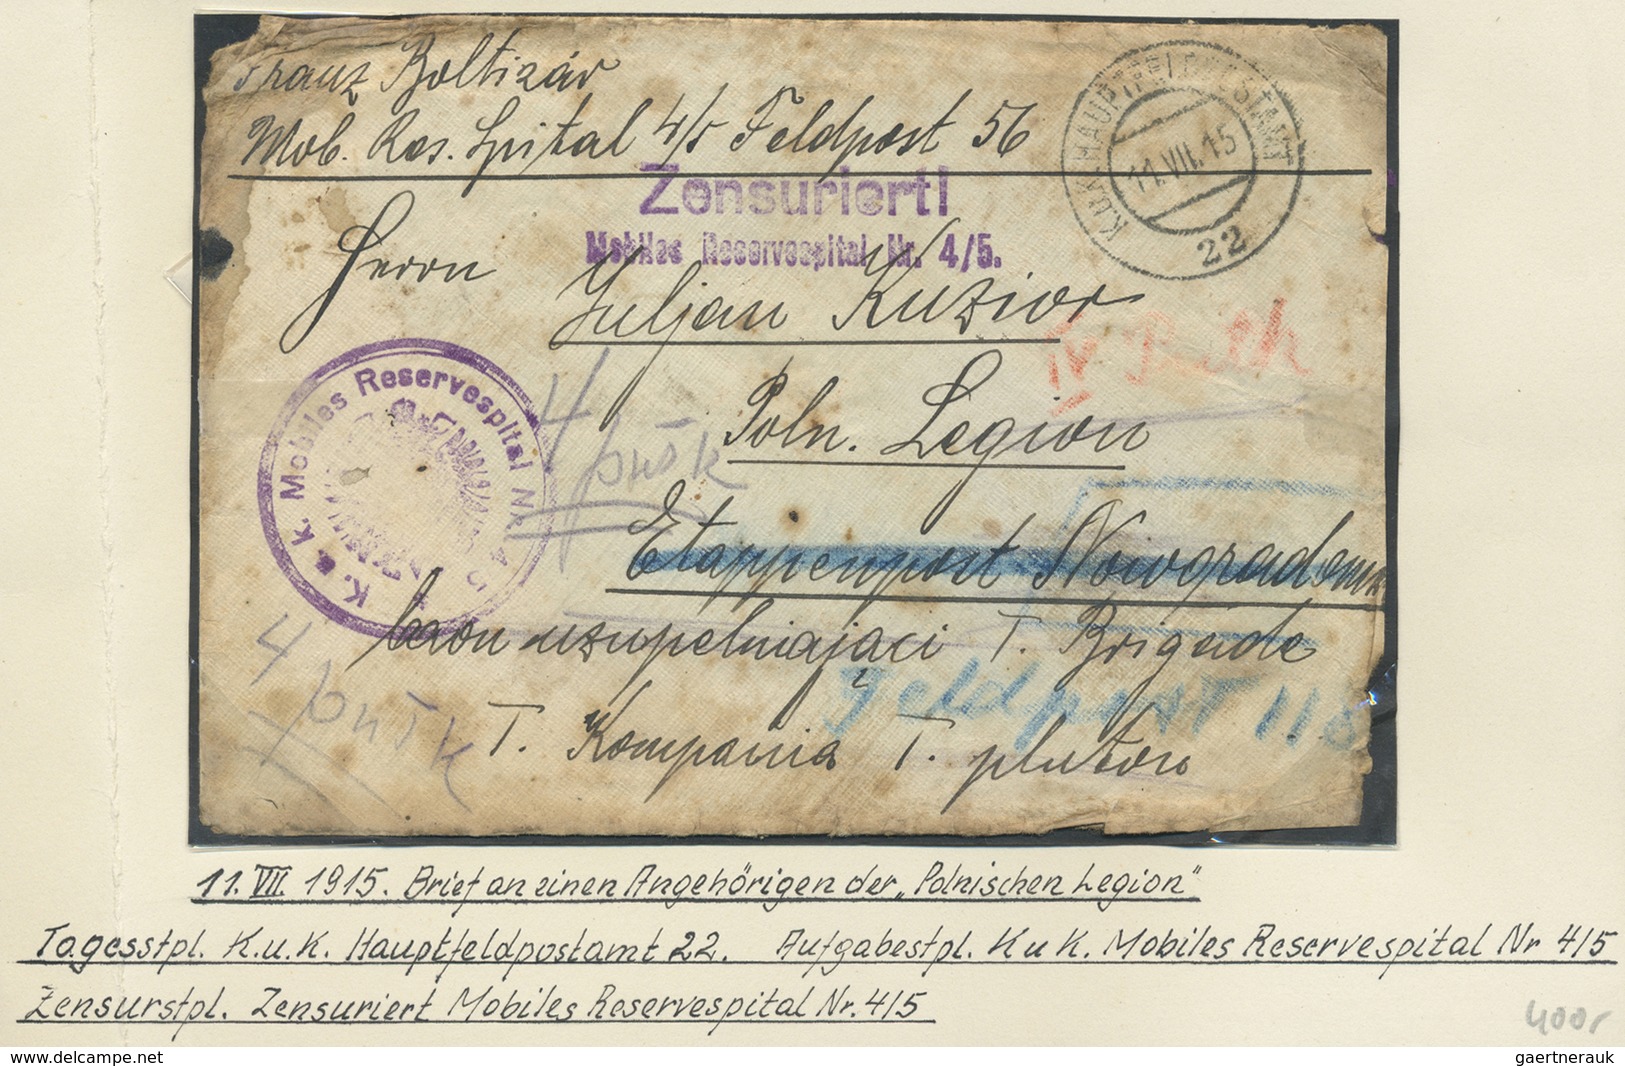 Franz Boltizár
Mob. Res. Spital 4/5 Feldpost 56
K.u.K. HAUPTFELDPOSTAMT
11.VII.15
22
Zensuriert!
Mobiles Reservespital Nr. 4/5.
Herrn
Juljan Kuzior
IV
Poln. Legion
K. u. k. Mobiles Reservespital Nr. 4/5
4 pušk
Etappenpost Nowogradom
baon uzupełniająci I. Brigade
Feldpost 118
4 pušk
I. Kompania I. pluton
11. VII. 1915. Brief an einen Angehörigen der „Polnischen Legion"
Tagesstpl. K.u.K. Hauptfeldpostamt 22. Aufgabestpl. K u K. Mobiles Reservespital Nr 4/5
Zensurstpl. Zensuriert Mobiles Reservespital Nr. 4/5
400,-
delcampe.net
gaertnerauk